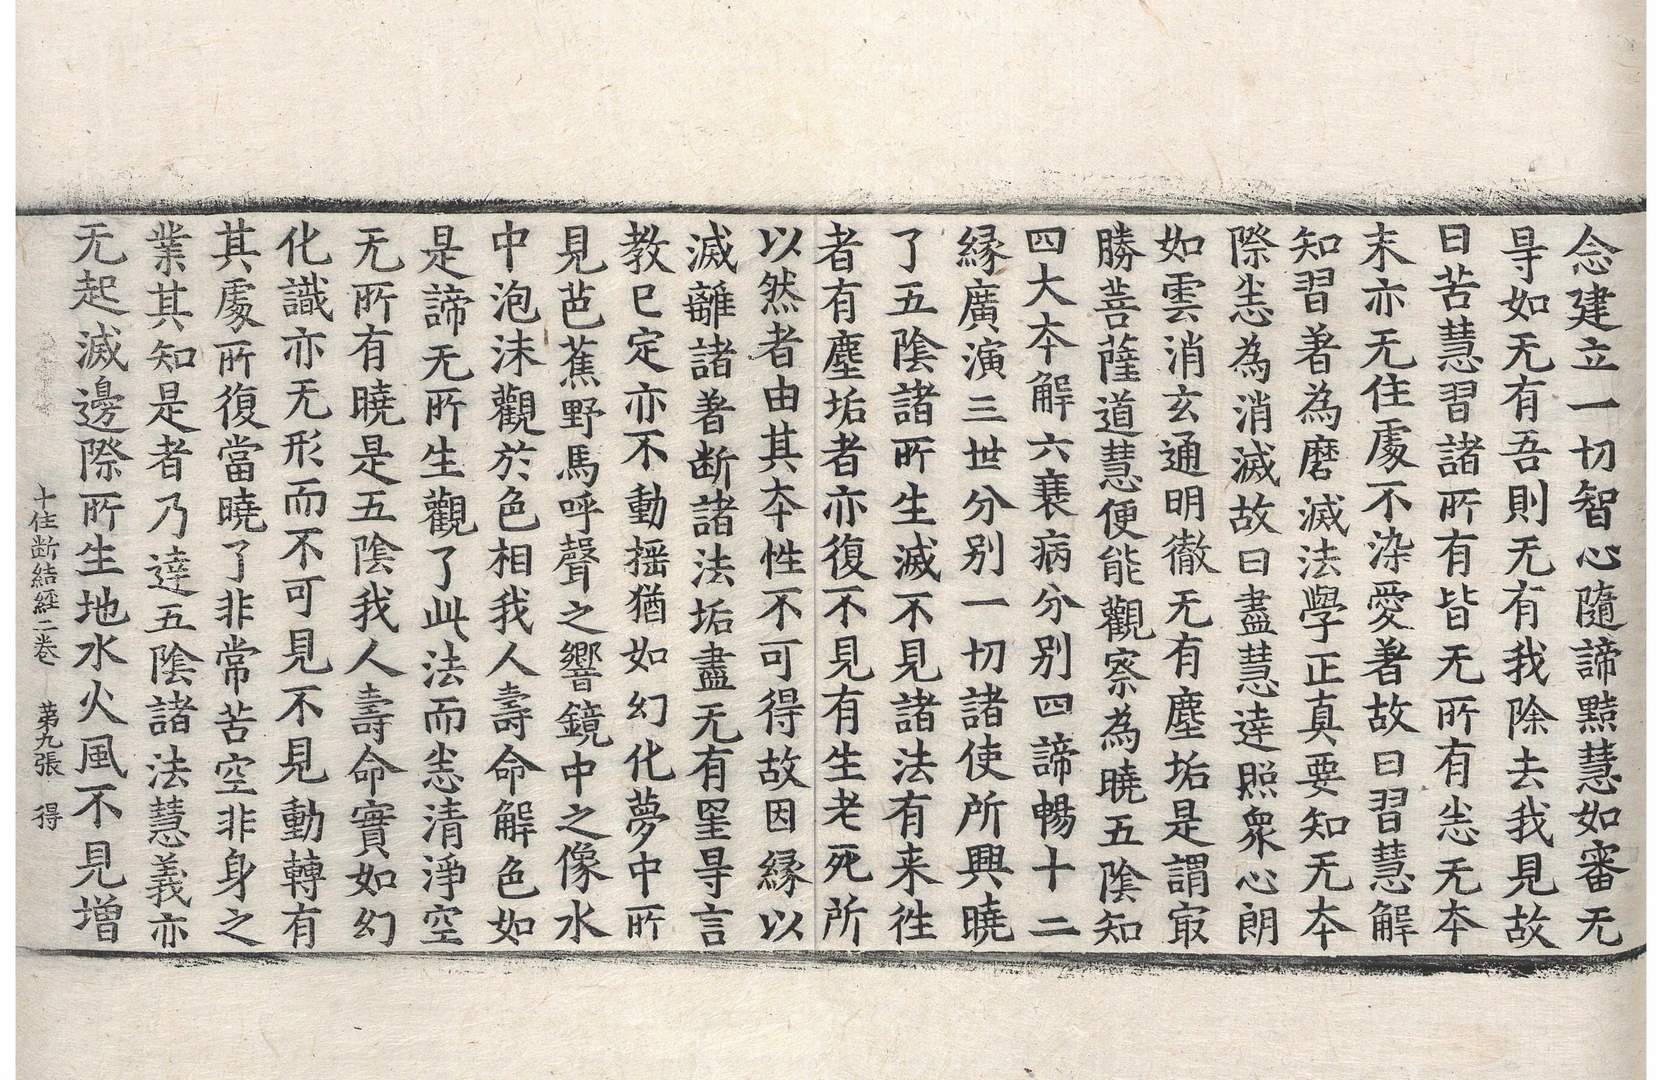 念建立一切智心隨諦黠慧如審无
㝵如无有吾則无有我除去我見故
曰苦慧習諸所有皆无所有㤀无夲
末亦无住處不染愛著故曰習慧解
知習著為磨滅法學正真要知无夲
際㤀為消滅故曰盡慧達照衆心朗
如雲消玄通明徹无有塵垢是謂㝡
勝菩薩道慧便能觀察為曉五陰知
四大夲解六衰病分别四諦暢十二
緣廣演三世分别一切諸使所興曉
了五陰諸所生滅不見諸法有来徃
者有塵垢者亦復不見有生老死所
以然者由其夲性不可得故因緣以
滅離諸著断諸法垢盡无有罣㝵言
教已定亦不動揺猶如幻化夢中所
見芭蕉野馬呼聲之響鏡中之像水
中泡沫觀於色相我人壽命解色如
是諦无所生觀了此法而㤀清淨空
无所有曉是五陰我人壽命實如幻
化識亦无形而不可見不見動轉有
其處所復當曉了非常苦空非身之
業其知是者乃達五陰諸法慧義亦
无起滅邊際所生地水火風不見增
十住断結經二卷 第九張 得